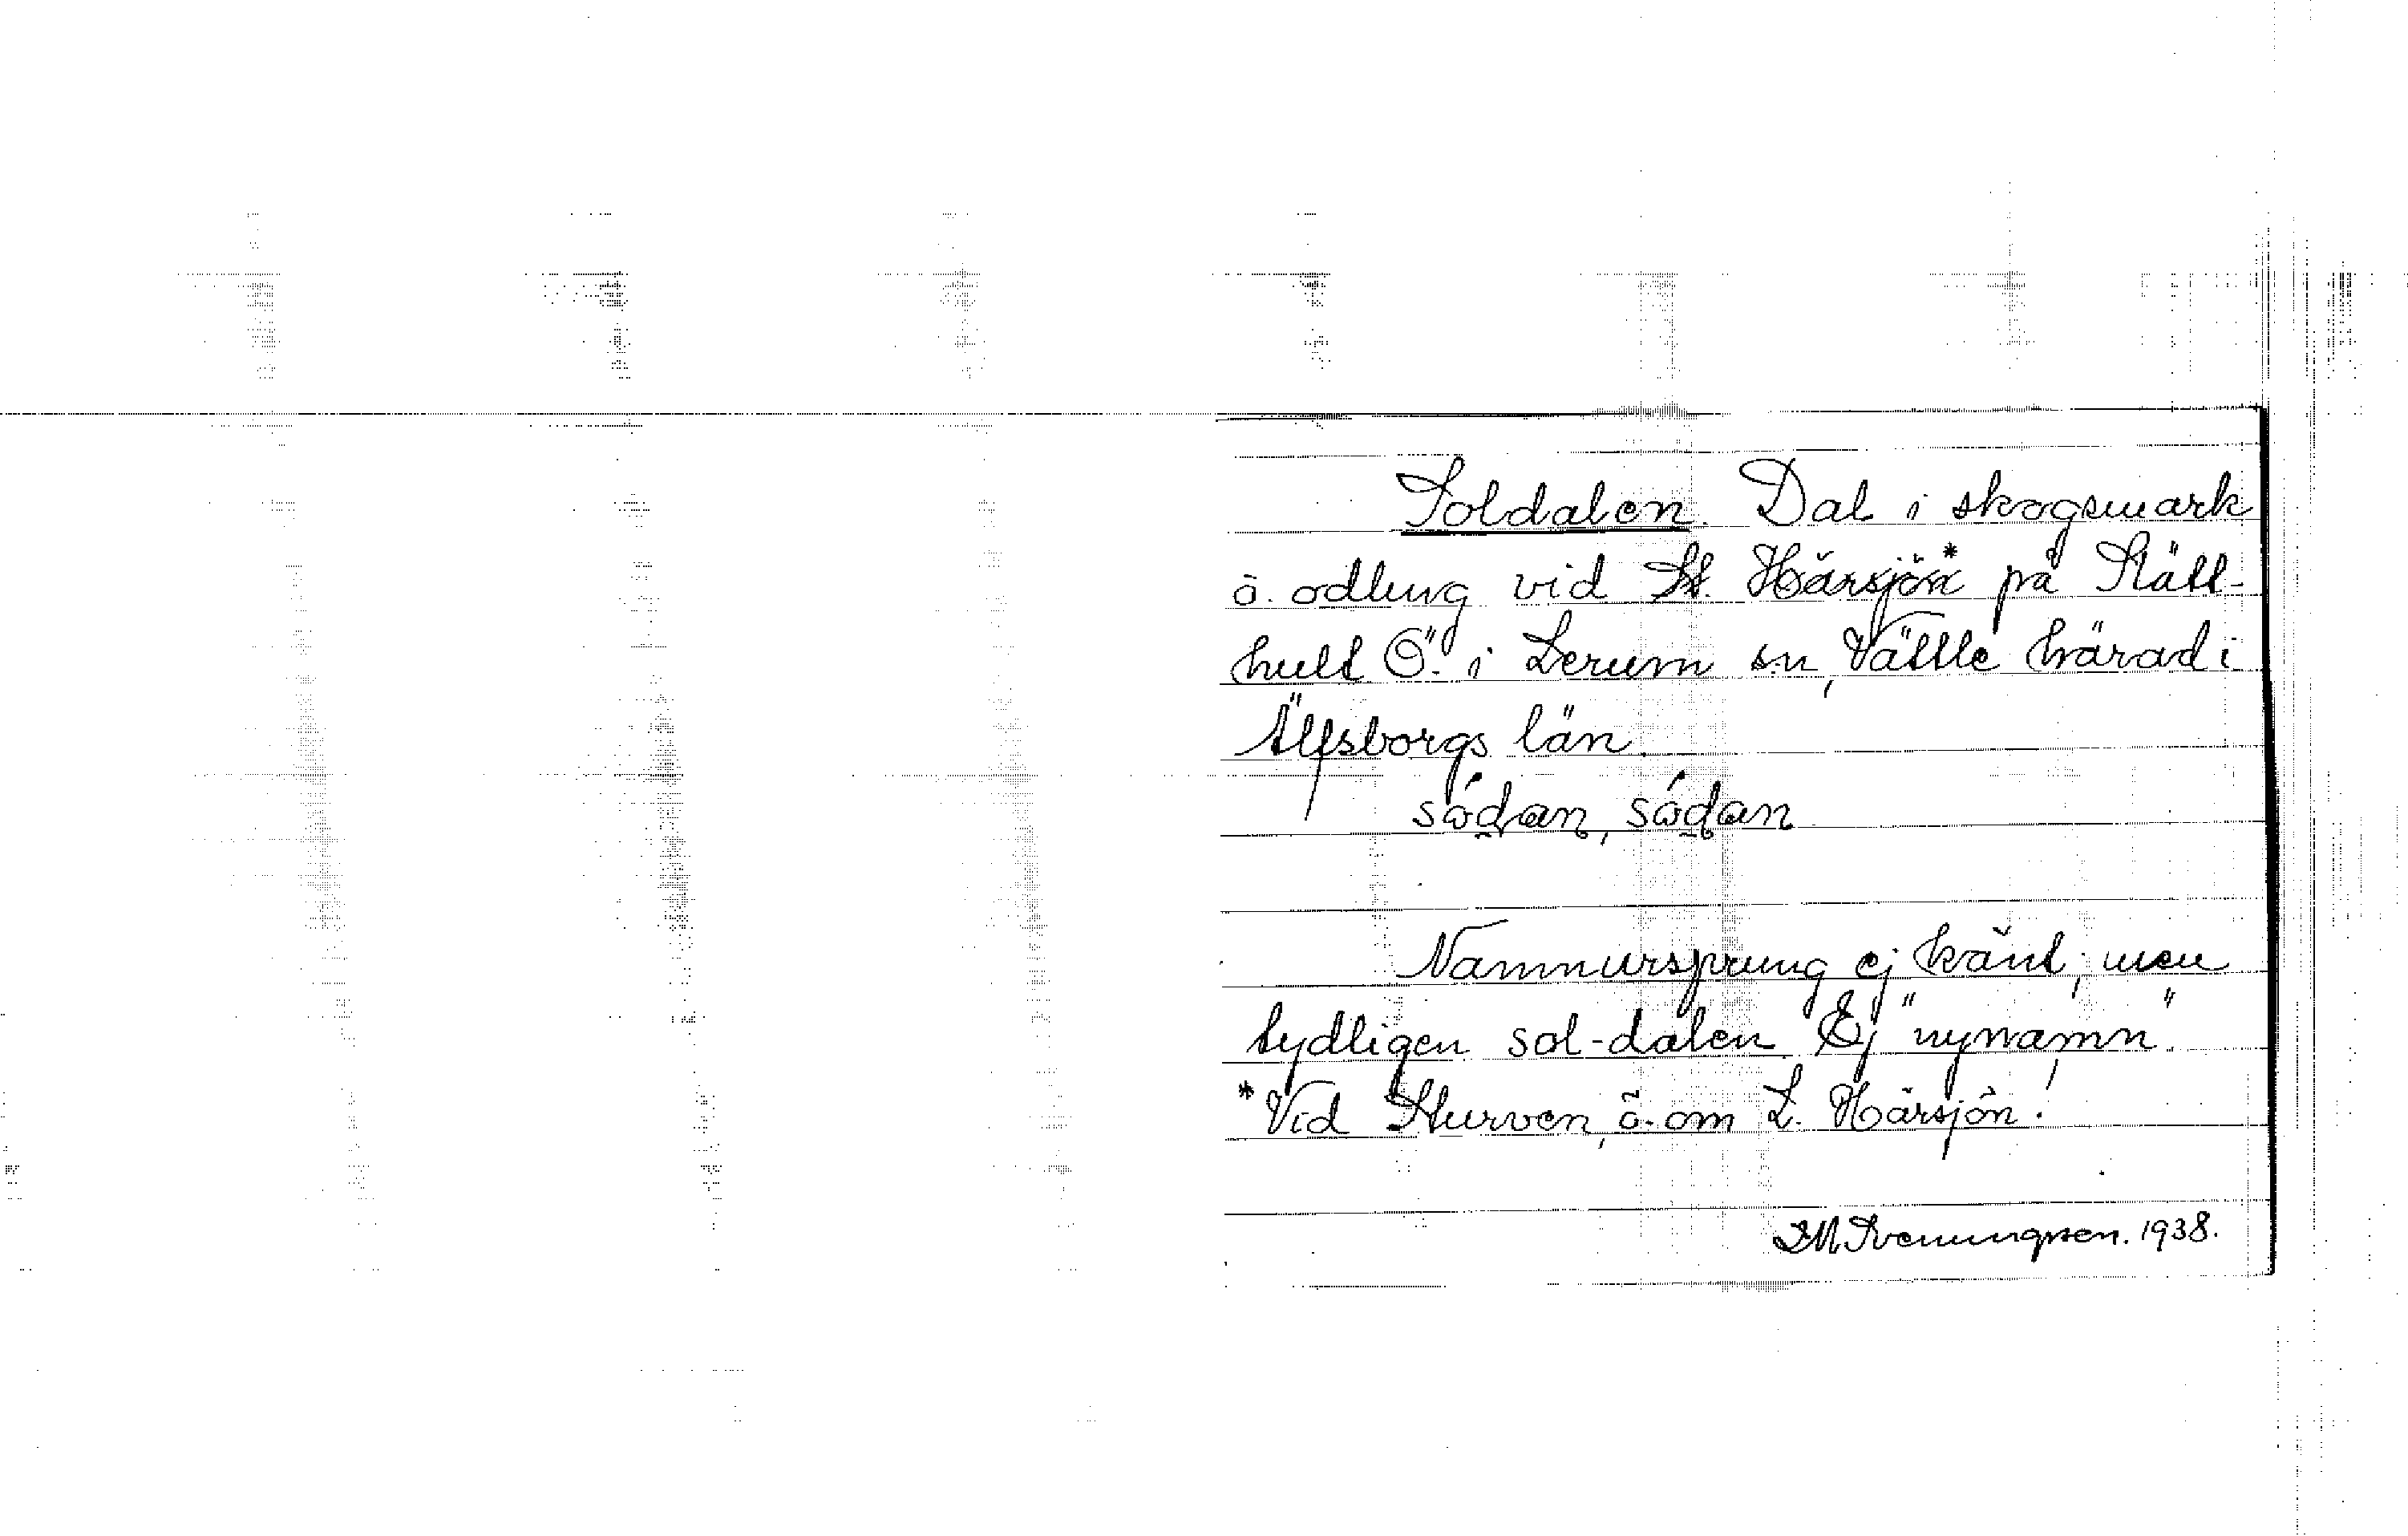 Soldalen. Dal i skogsmark
ö. odling vid St. Härsjön* på Slätt-
hult Ö. i Lerum sn, Vättle härad i
Älfsborgs län.
Namnursprung ej känt, men
tydligen sol-dalen. Ej "nynamn".
*Vid Sturven, ö. om L. Härsjön.
1938.